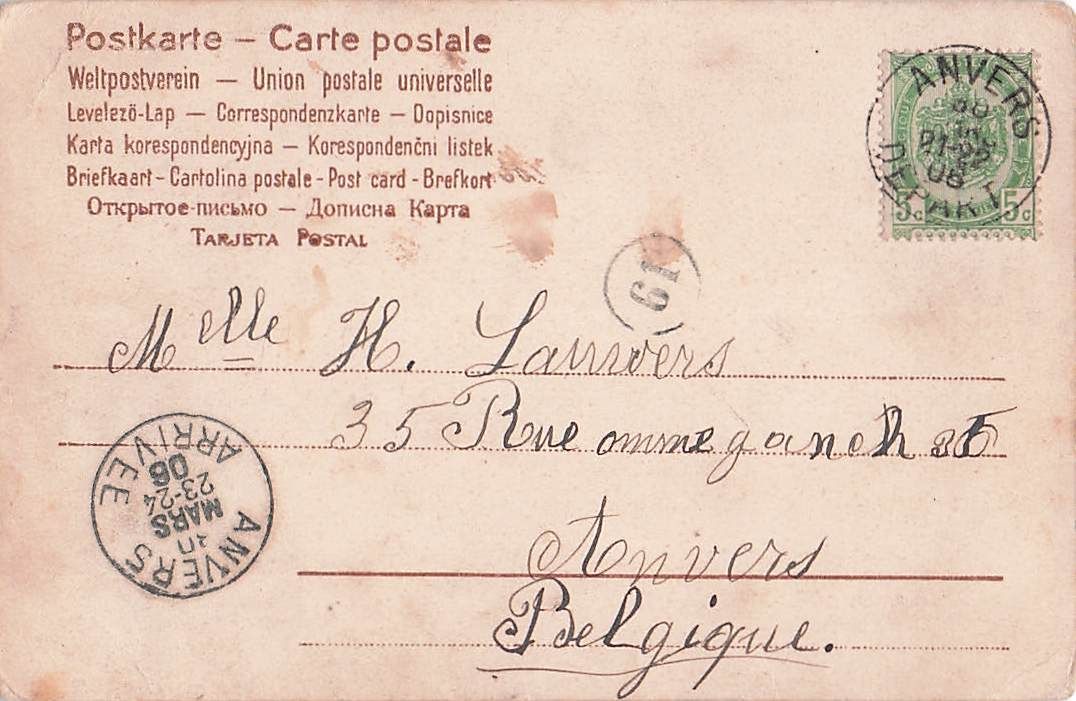 Postkarte – Carte postale
Weltpostverein — Union postale universelle
Levelező-Lap — Correspondenzkarte — Dopisnice
Karta korespondencyjna — Korespondenční listek
Briefkaart - Cartolina postale - Post card - Brefkort
Открытое-письмо — Дописна Карта
TARJETA POSTAL
ANVERS
DEPART
5c 5c
61
Mlle H. Lauwers
35 Rue ommeganck 35
ANVERS
MARS
23-24
06
ARRIVEE
Anvers
Belgique.